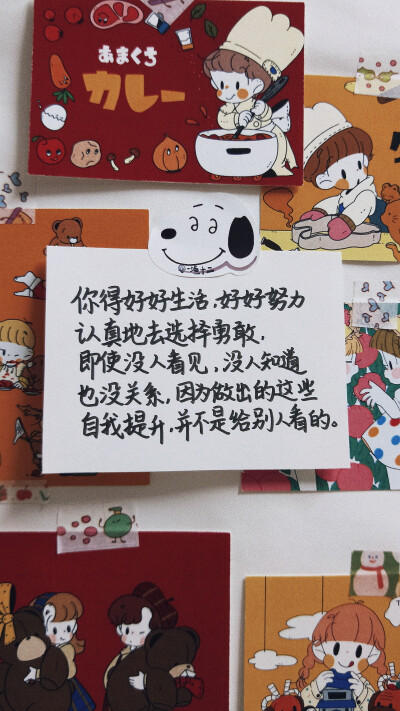 あまくち
カレー
你得好好生活、好好努力
认真地去选择勇敢，
即使没人看见，没人知道
也没关系，因为做出的这些
自我提升，并不是给别人看的。